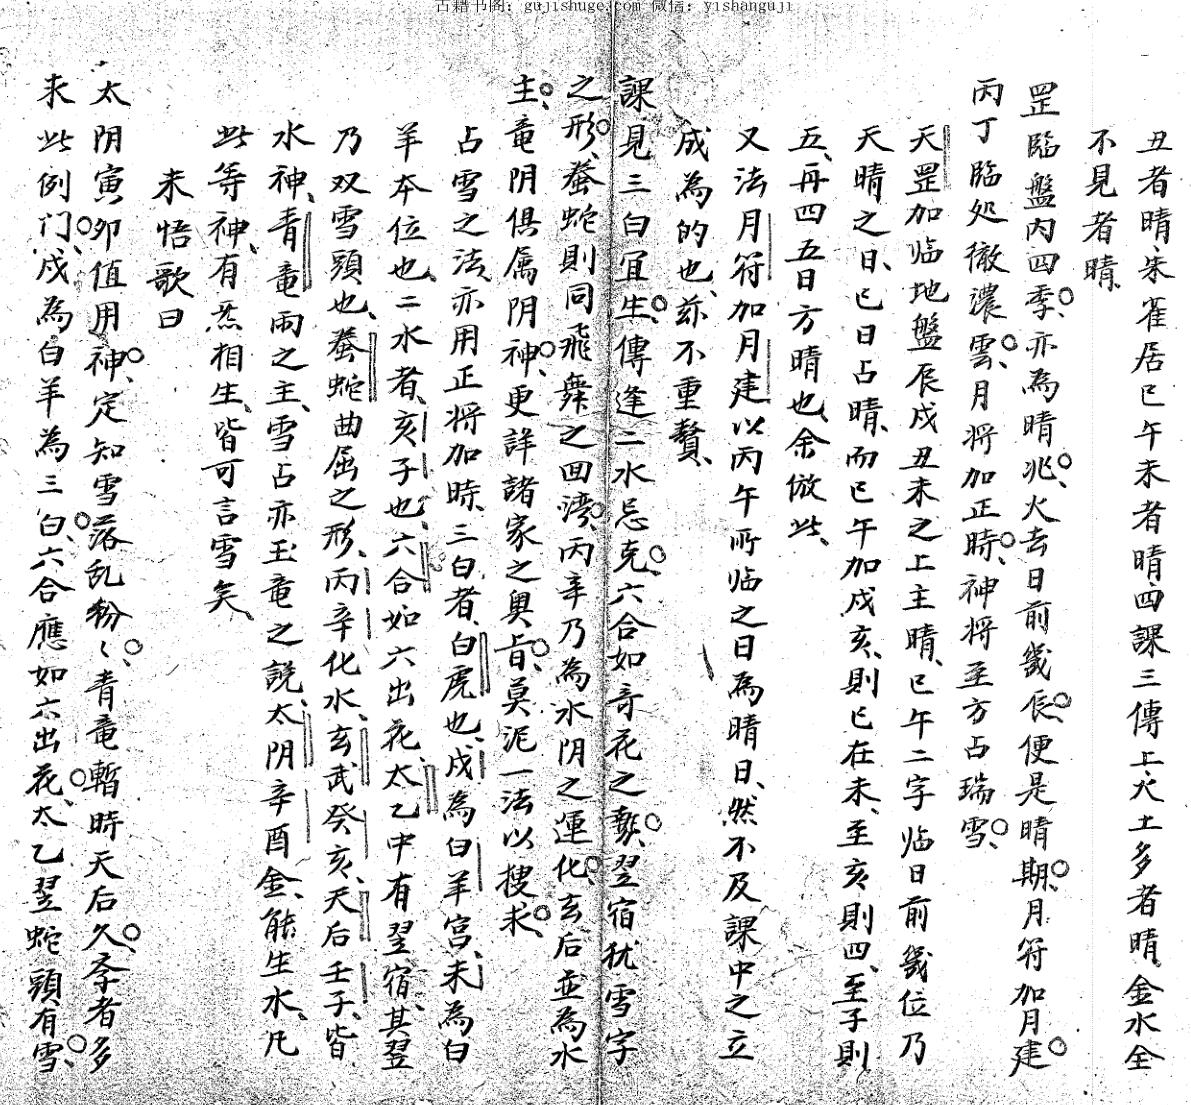 古籍书阁：gujishuge.com 微信：yishanguji
丑者晴朱雀居巳午未者晴四課三傳上火土多者晴金水全
不見者晴
罡臨盤内四季亦為晴兆火去日前幾辰便是晴期月符加月建
丙丁臨処徹濃雲月将加正時神将至方占瑞雪
天罡加临地盤辰戌丑未之上主晴巳午二字临日前幾位乃
天晴之日巳日占晴而巳午加戌亥則巳在未至亥則四至子則
五再四五日方晴也余倣此
又法月符加月建以丙午所临之日為晴日然不及課中之立
成為的也兹不重贅
課見三白宜生傳逢二水忌克六合如奇花之數翌宿犹雪字
之形蚕蛇則同飛舞之回湾丙辛乃為水阴之運化玄后並為水
主竜阴俱属阴神更詳諸家之奥旨莫泥一法以搜求
占雪之法亦用正将加時三白者白虎也戌為白羊宫未為白
羊夲位也二水者亥子也六合如六出花太乙中有翌宿其翌
乃双雪頭也蚕蛇曲屈之形丙辛化水玄武癸亥天后壬子皆
水神青竜雨之主雪占亦玉竜之説太阴辛酉金能生水凡
此等神有炁相生皆可言雪矣
未悟歌曰
太阴寅夘值用神定知雪落乱粉〻青竜暫時天后久李者多
来此例门戌為白羊為三白六合應如六出花太乙翌蛇頭有雪